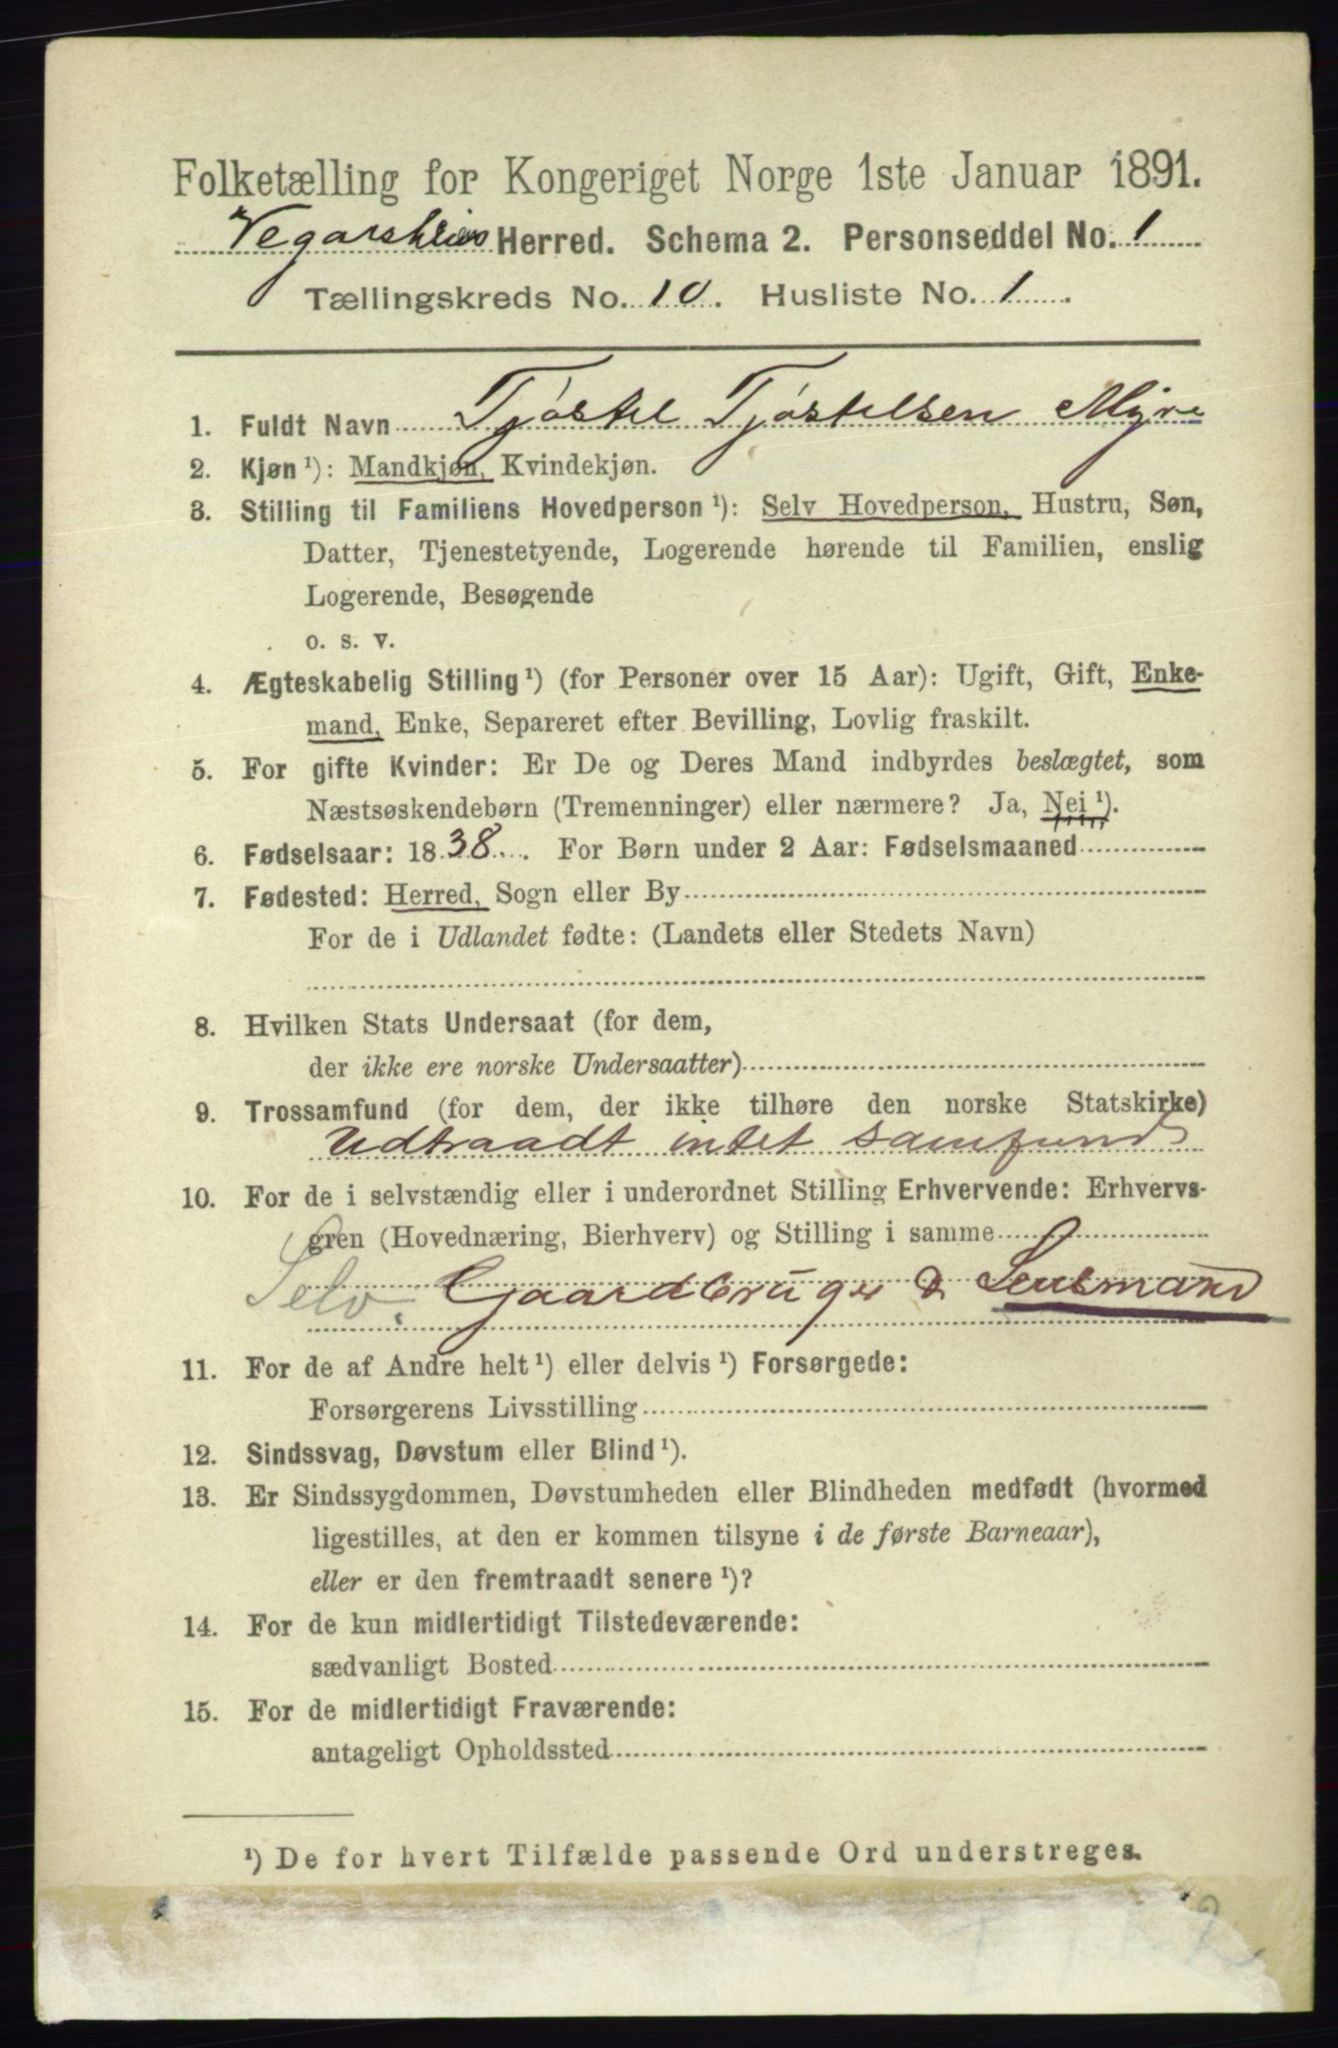 Folketælling for Kongeriget Norge 1ste Januar 1891.
Vegarsheiens Herred. Schema 2. Personseddel No. 1
Tællingskreds No. 10. Husliste No. 1.
1. Fuldt Navn Tjøstel Tjøstelsen Myre
2. Kjøn ¹): Mandkjøn, Kvindekjøn.
3. Stilling til Familiens Hovedperson ¹): Selv Hovedperson, Hustru, Søn,
Datter, Tjenestetyende, Logerende hørende til Familien, enslig
Logerende, Besøgende
o. s. v.
4. Ægteskabelig Stilling ¹) (for Personer over 15 Aar): Ugift, Gift, Enke-
mand, Enke, Separeret efter Bevilling, Lovlig fraskilt.
5. For gifte Kvinder: Er De og Deres Mand indbyrdes beslægtet, som
Næstsøskendebørn (Tremenninger) eller nærmere? Ja, Nei ¹).
6. Fødselsaar: 1838. For Børn under 2 Aar: Fødselsmaaned
7. Fødested: Herred, Sogn eller By
For de i Udlandet fødte: (Landets eller Stedets Navn)
8. Hvilken Stats Undersaat (for dem,
der ikke ere norske Undersaatter)
9. Trossamfund (for dem, der ikke tilhøre den norske Statskirke)
Udtraadt intet samfund
10. For de i selvstændig eller i underordnet Stilling Erhvervende: Erhvervs-
gren (Hovednæring, Bierhverv) og Stilling i samme
Selv. Gaardbruger & Lensmand
11. For de af Andre helt ¹) eller delvis ¹) Forsørgede:
Forsørgerens Livsstilling
12. Sindssvag, Døvstum eller Blind ¹).
13. Er Sindssygdommen, Døvstumheden eller Blindheden medfødt (hvormed
ligestilles, at den er kommen tilsyne i de første Barneaar),
eller er den fremtraadt senere ¹)?
14. For de kun midlertidigt Tilstedeværende:
sædvanligt Bosted
15. For de midlertidigt Fraværende:
antageligt Opholdssted
¹) De for hvert Tilfælde passende Ord understreges.